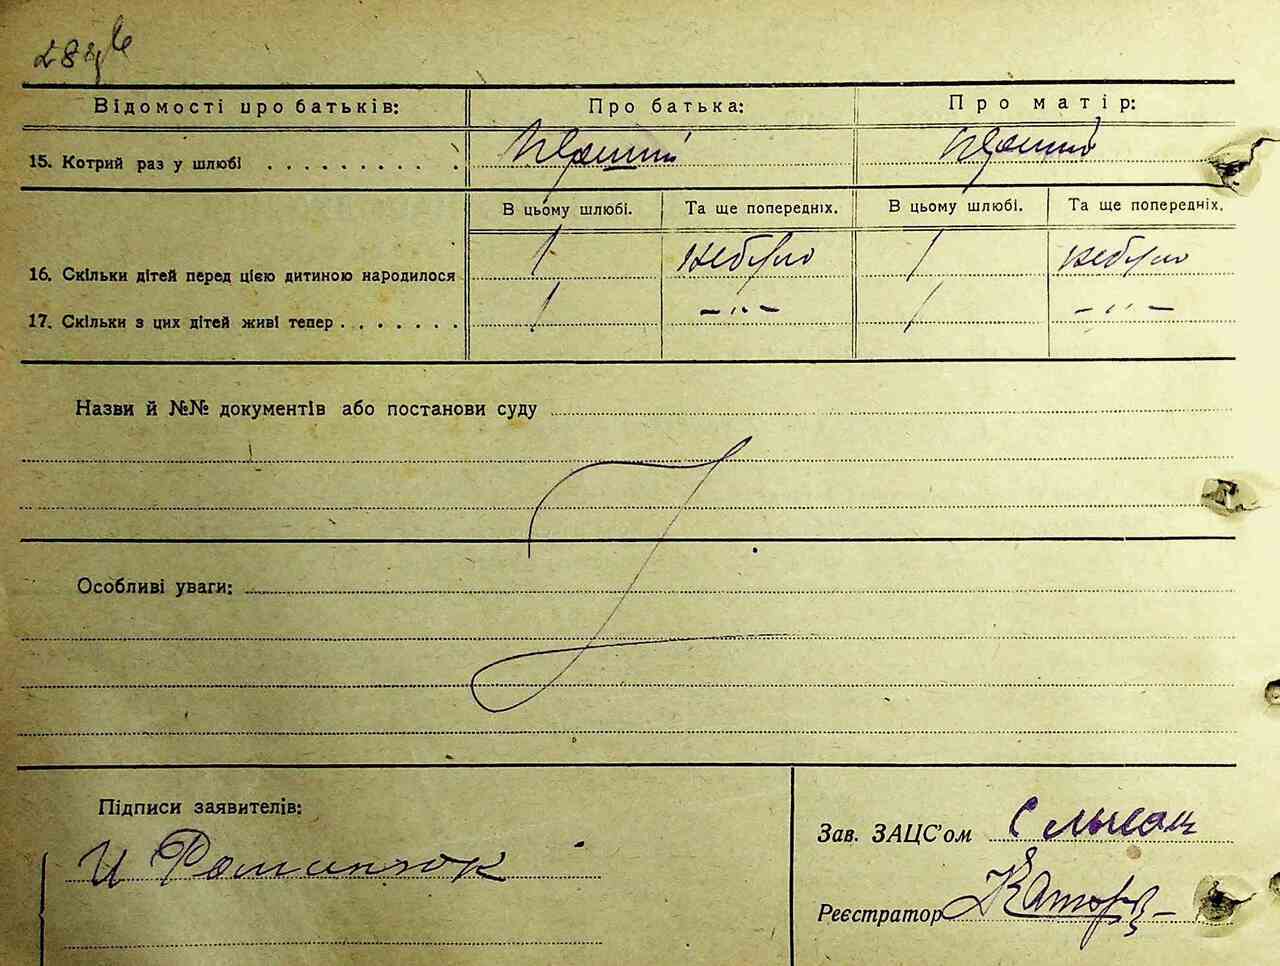 Відомості про батьків: Про батька: Про матір:
15. Котрий раз у шлюбі . . . . . . . . . . Перший Перший
В цьому шлюбі. Та ще попередніх. В цьому шлюбі. Та ще попередніх.
16. Скільки дітей перед цією дитиною народилося 1 небуло 1 небуло
17. Скільки з цих дітей живі тепер . . . . . . . 1 –"– 1 –"–
Назви й №№ документів або постанови суду
Особливі уваги:
Підписи заявителів:
И Романюк
Зав. ЗАЦС'ом
Реєстратор